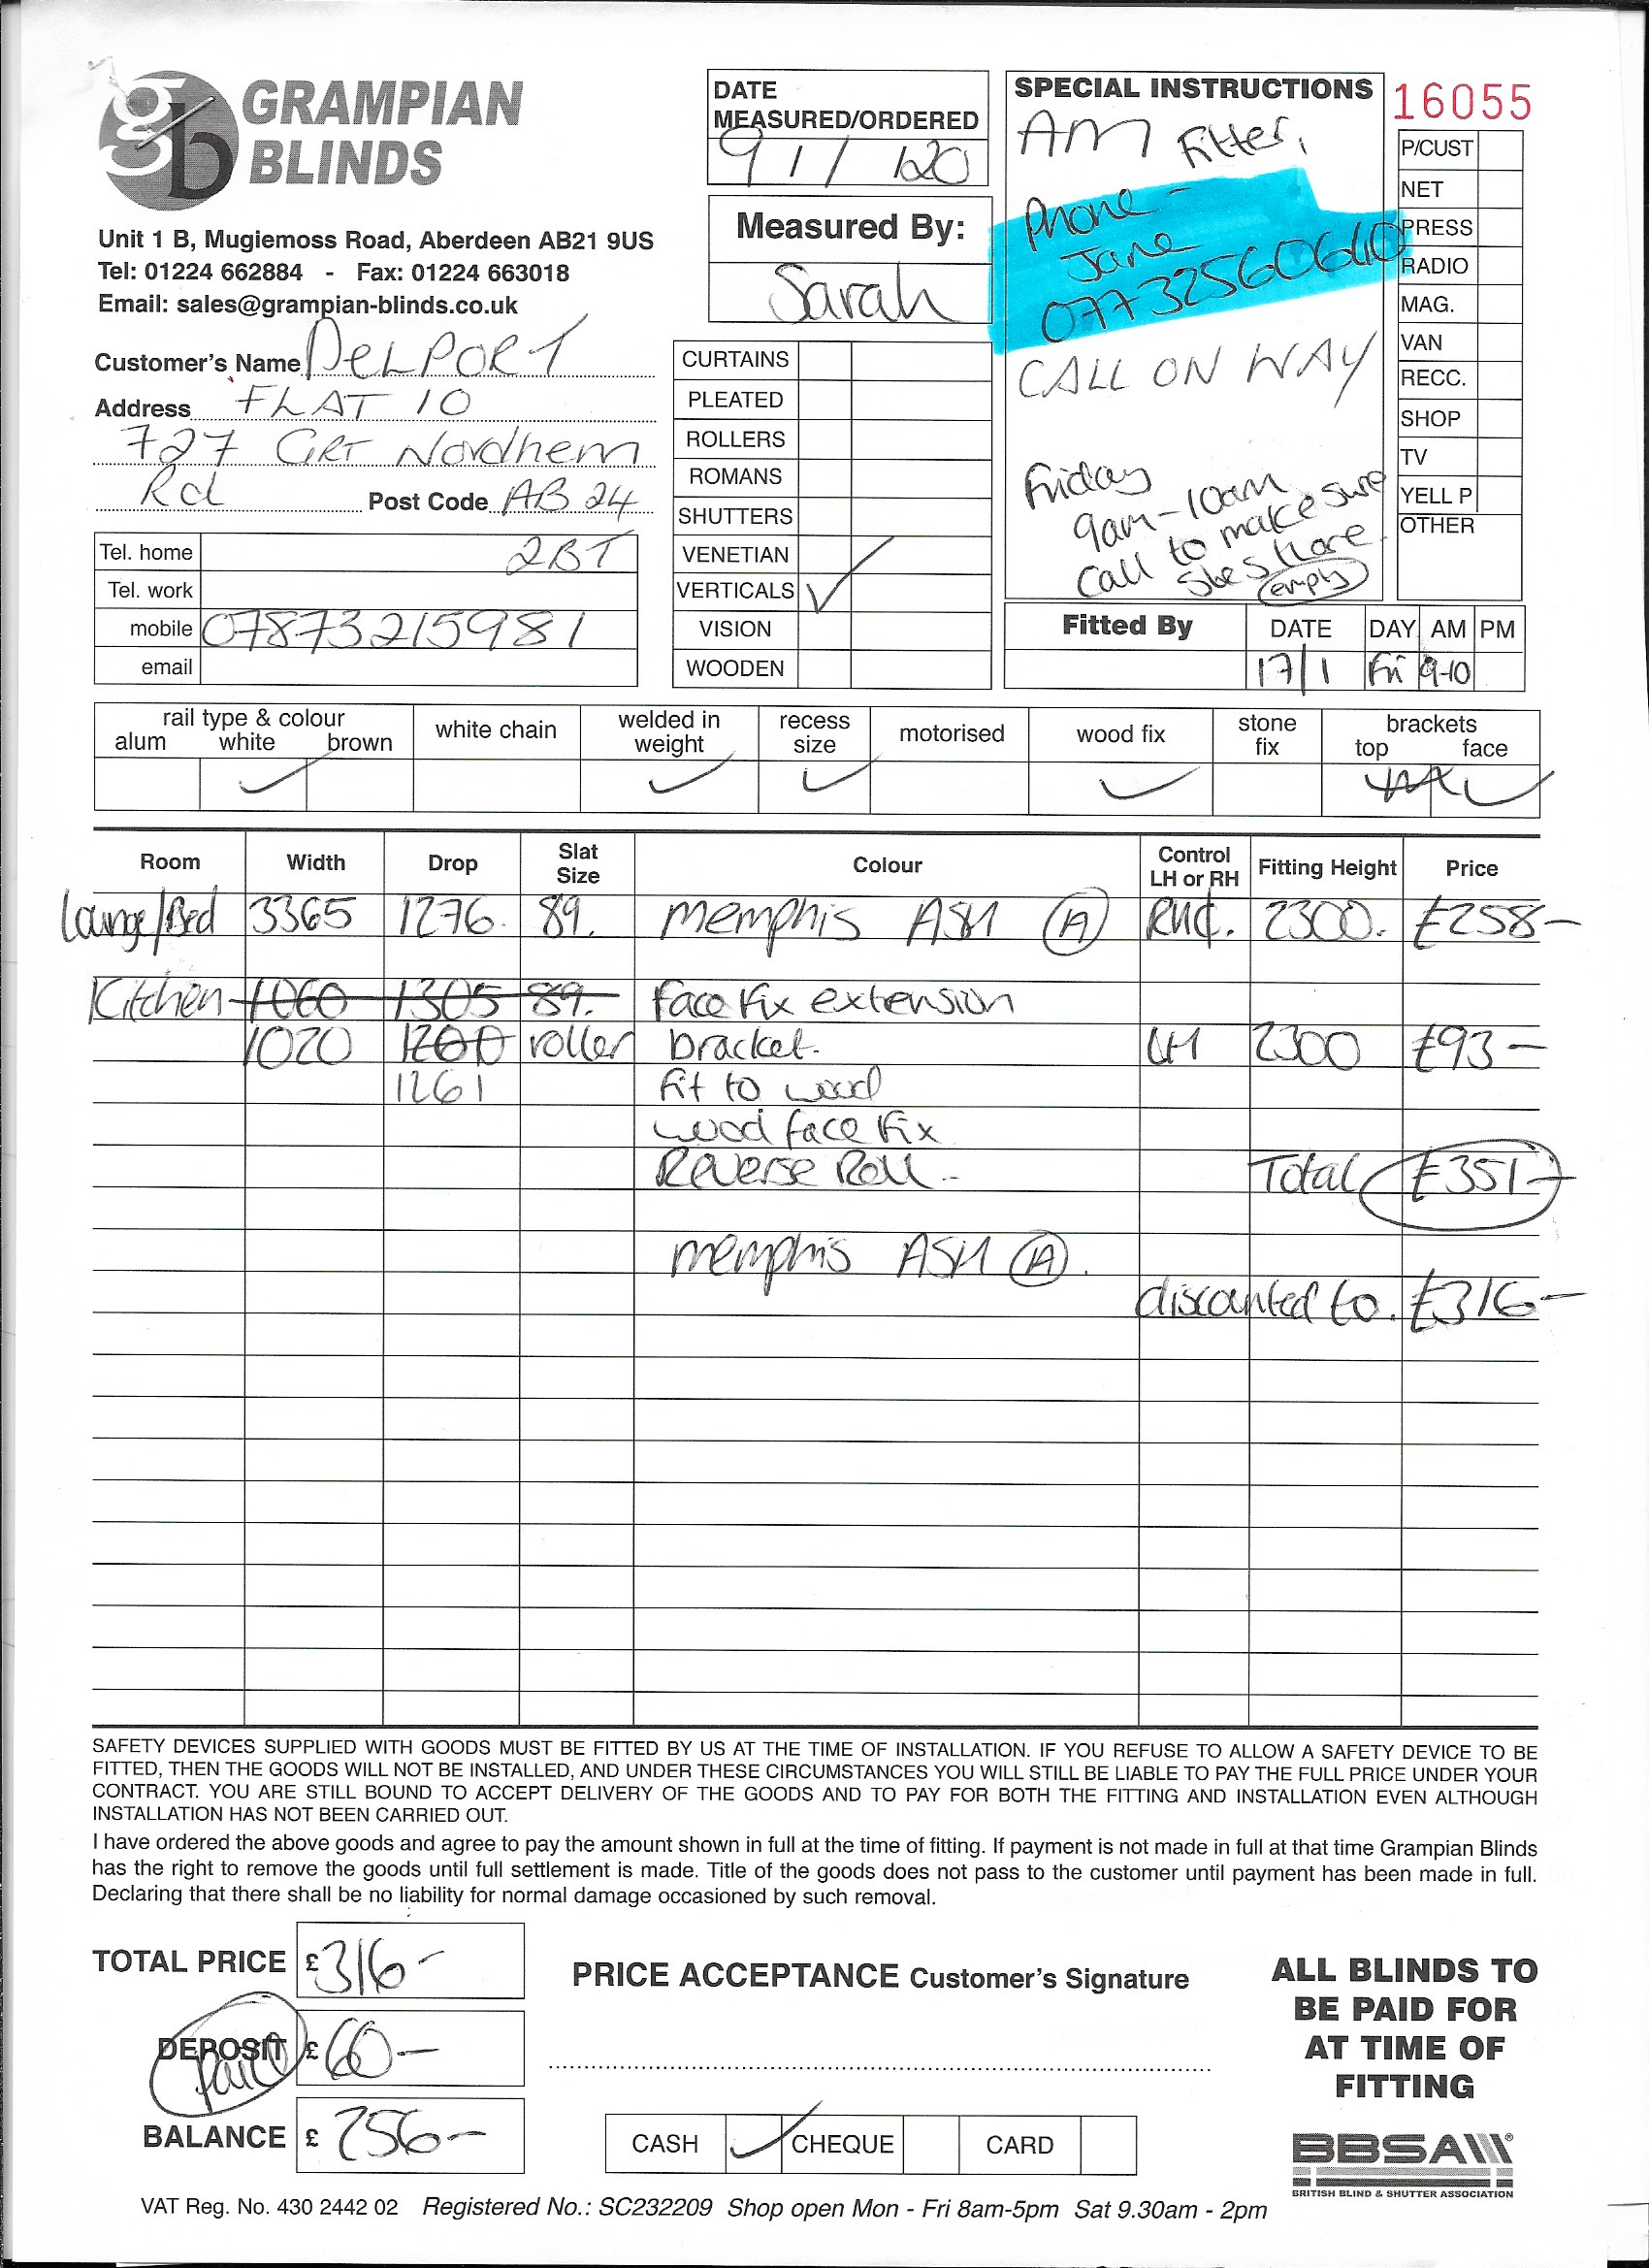 gb GRAMPIAN BLINDS
Unit 1 B, Mugiemoss Road, Aberdeen AB21 9US
Tel: 01224 662884 - Fax: 01224 663018
Email: sales@grampian-blinds.co.uk
Customer's Name DELPORT
Address FLAT 10
727 GRT Nordhern
Rd Post Code AB24
2BT
Tel. home
Tel. work
mobile 07873215981
email
DATE
MEASURED/ORDERED
9 1 / 120
Measured By:
Sarah
CURTAINS
PLEATED
ROLLERS
ROMANS
SHUTTERS
VENETIAN
VERTICALS ✓
VISION
WOODEN
SPECIAL INSTRUCTIONS
AM Fitter,
Phone -
Jane
07732560640
CALL ON WAY
Friday
9am-10am
Call to make sure
empty
16055
P/CUST
NET
PRESS
RADIO
MAG.
VAN
RECC.
SHOP
TV
YELL P
OTHER
Fitted By DATE DAY AM PM
17/1 Fri 9-10
rail type & colour white chain welded in weight recess size motorised wood fix stone fix brackets
alum white brown top face
✓ ✓ ✓ ✓ ✓
Room Width Drop Slat Size Colour Control LH or RH Fitting Height Price
Lounge/Bed 3365 1276. 89. Memphis ASH (A) RHC. 2300. £258-
Kitchen 1060 1305 89. face fix extension
1020 1200 roller bracket. LH 2300 £93-
1261 fit to wood
wood face fix
Reverse Roll - Total £351-
Memphis ASH (A).
discounted to. £316-
SAFETY DEVICES SUPPLIED WITH GOODS MUST BE FITTED BY US AT THE TIME OF INSTALLATION. IF YOU REFUSE TO ALLOW A SAFETY DEVICE TO BE
FITTED, THEN THE GOODS WILL NOT BE INSTALLED, AND UNDER THESE CIRCUMSTANCES YOU WILL STILL BE LIABLE TO PAY THE FULL PRICE UNDER YOUR
CONTRACT. YOU ARE STILL BOUND TO ACCEPT DELIVERY OF THE GOODS AND TO PAY FOR BOTH THE FITTING AND INSTALLATION EVEN ALTHOUGH
INSTALLATION HAS NOT BEEN CARRIED OUT.
I have ordered the above goods and agree to pay the amount shown in full at the time of fitting. If payment is not made in full at that time Grampian Blinds
has the right to remove the goods until full settlement is made. Title of the goods does not pass to the customer until payment has been made in full.
Declaring that there shall be no liability for normal damage occasioned by such removal.
TOTAL PRICE £ 316-
DEPOSIT £ 60-
paid
BALANCE £ 256-
PRICE ACCEPTANCE Customer's Signature
CASH ✓ CHEQUE CARD
ALL BLINDS TO
BE PAID FOR
AT TIME OF
FITTING
BBSA
BRITISH BLIND & SHUTTER ASSOCIATION
VAT Reg. No. 430 2442 02 Registered No.: SC232209 Shop open Mon - Fri 8am-5pm Sat 9.30am - 2pm